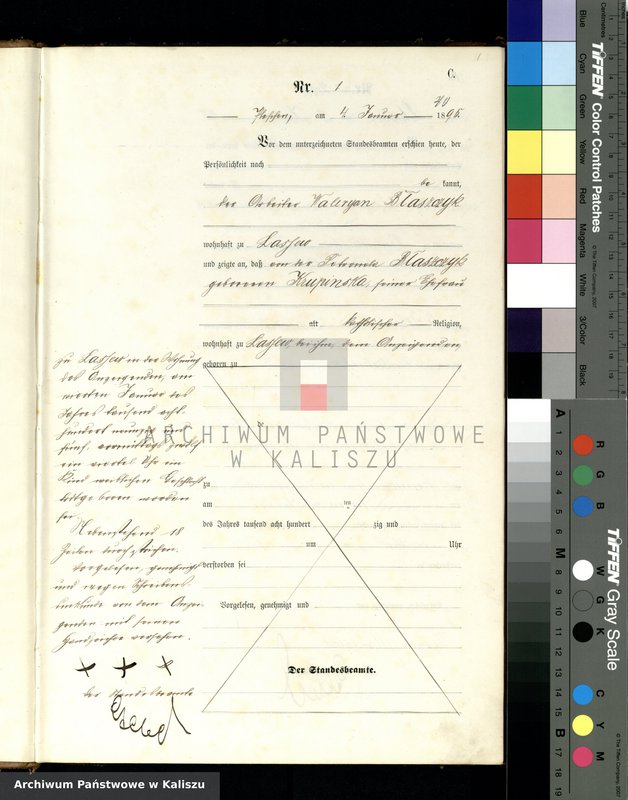 C.
1
Nr. 1
Pleschen, am 4. Januar 1895.
Vor dem unterzeichneten Standesbeamten erschien heute, der
Persönlichkeit nach
be kannt,
der Arbeiter Valeryan Błaszczyk
wohnhaft zu Lassew
und zeigte an, daß von der Petronela Błaszczyk
geborenen Krupinska, seiner Ehefrau
alt katholischer Religion,
wohnhaft zu Lassew, bei ihm, dem Anzeigenden
geboren zu
zu
am ten
des Jahres tausend acht hundert zig und
um Uhr
verstorben sei
Vorgelesen, genehmigt und
Der Standesbeamte.
zu Lassew in der Wohnung
des Anzeigenden, am
Januar des
Jahres tausend acht
hundert neunzig und
fünf, vormittags
ein viertel Uhr ein
Kind weiblichen Geschlechts
todtgeboren worden
sei.
Nebenstehend 18
Zeilen durchstrichen.
Vorgelesen, genehmigt
und wegen Schreibens
unkunde von dem Anzei-
genden mit seinem
Handzeichen versehen.
+ + +
der Standesbeamte
ARCHIWUM PAŃSTWOWE
W KALISZU
Archiwum Państwowe w Kaliszu
Centimetres
Inches
Blue
Cyan
Green
Yellow
Red
Magenta
White
3/Color
Black
TIFFEN Color Control Patches
© The Tiffen Company, 2007
A 1 2 3 4 5 6 M 8 9 10 11 12 13 14 15 B 17 18 19
R G B W G K C Y M
TIFFEN Gray Scale
© The Tiffen Company, 2007